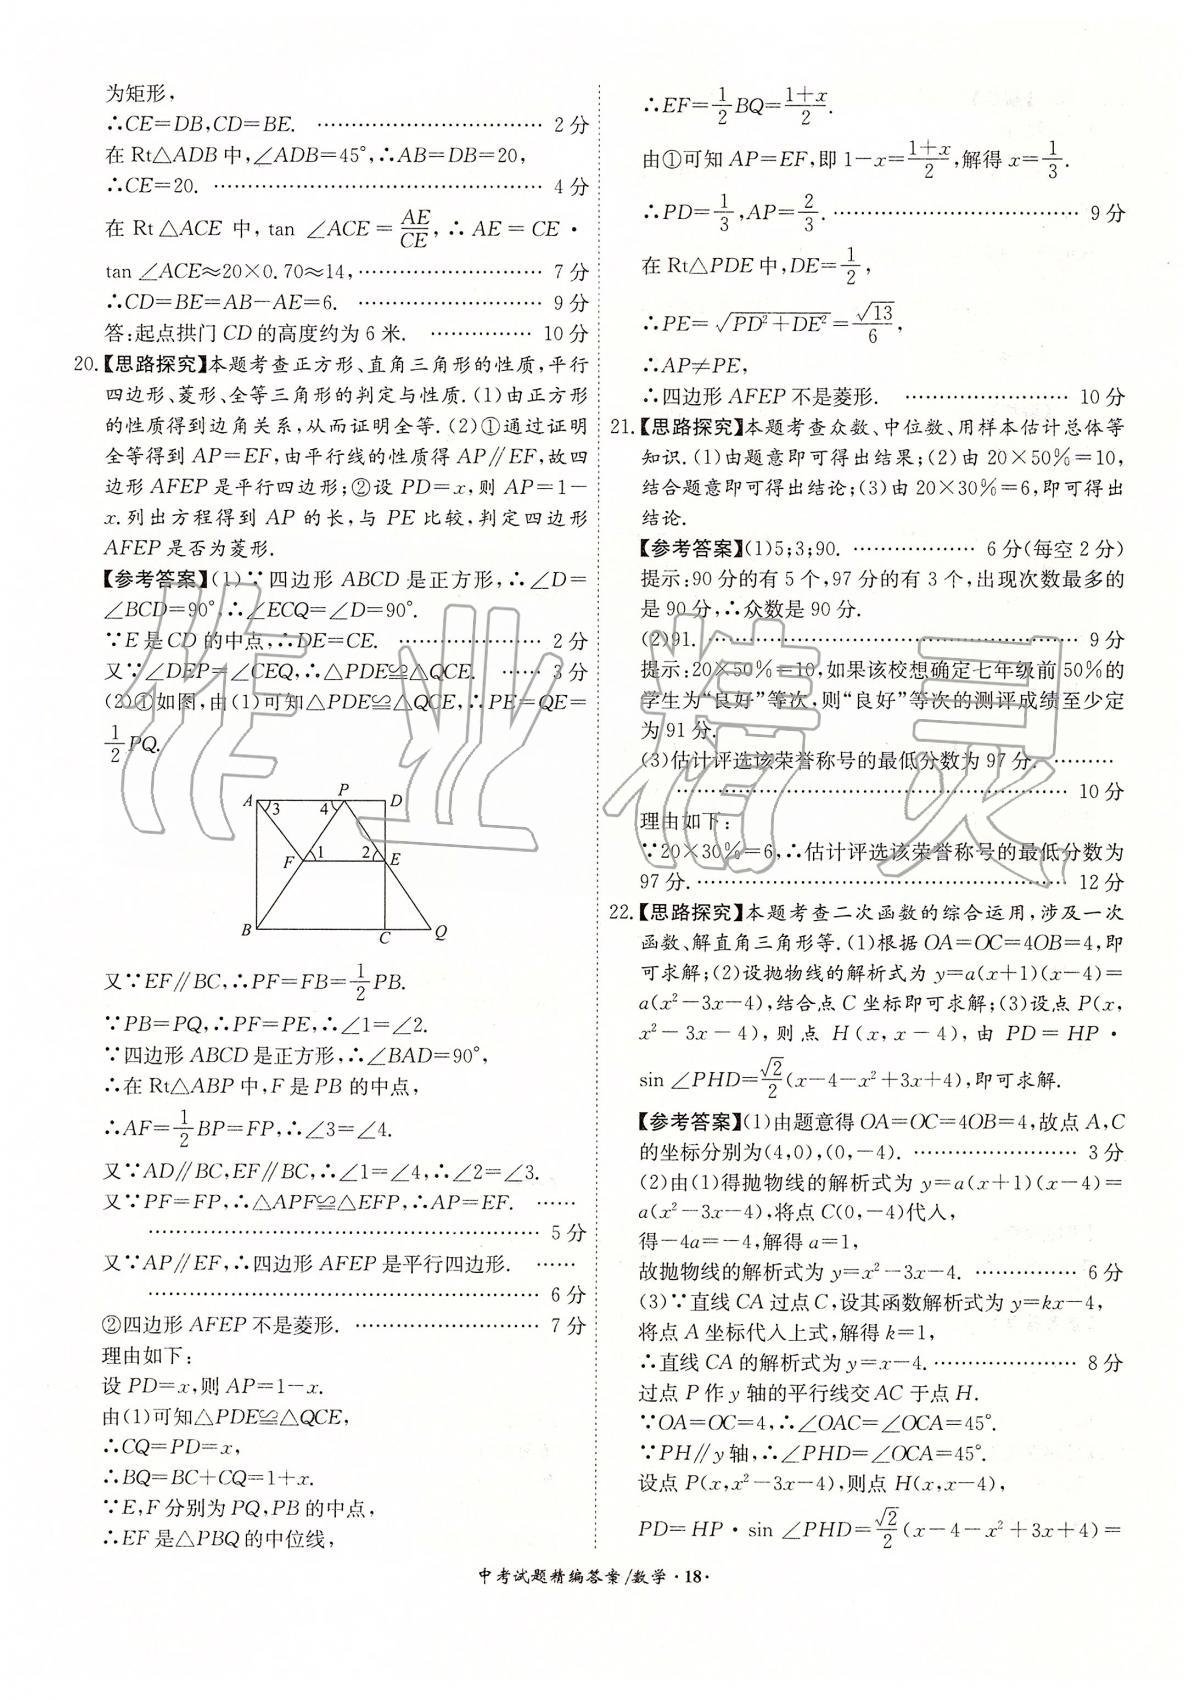 为矩形,
∴CE=DB,CD=BE. ……………………………… 2分
在Rt△ADB中,∠ADB=45°,∴AB=DB=20,
∴CE=20. ………………………………………… 4分
在Rt△ACE中,tan∠ACE=AE/CE,∴AE=CE·
tan∠ACE≈20×0.70≈14,……………………… 7分
∴CD=BE=AB-AE=6. ……………………… 9分
答:起点拱门CD的高度约为6米. …………… 10分
20.【思路探究】本题考查正方形、直角三角形的性质,平行
四边形、菱形、全等三角形的判定与性质.(1)由正方形
的性质得到边角关系,从而证明全等.(2)①通过证明
全等得到AP=EF,由平行线的性质得AP∥EF,故四
边形AFEP是平行四边形;②设PD=x,则AP=1-
x.列出方程得到AP的长,与PE比较,判定四边形
AFEP是否为菱形.
【参考答案】(1)∵四边形ABCD是正方形,∴∠D=
∠BCD=90°,∴∠ECQ=∠D=90°.
∵E是CD的中点,∴DE=CE. ………………… 2分
又∵∠DEP=∠CEQ,∴△PDE≌△QCE. …… 3分
(2)①如图,由(1)可知△PDE≌△QCE,∴PE=QE=
1/2PQ.
A 3 4 P D
F 1 2 E
B C Q
又∵EF∥BC,∴PF=FB=1/2PB.
∵PB=PQ,∴PF=PE,∴∠1=∠2.
∵四边形ABCD是正方形,∴∠BAD=90°,
∴在Rt△ABP中,F是PB的中点,
∴AF=1/2BP=FP,∴∠3=∠4.
又∵AD∥BC,EF∥BC,∴∠1=∠4,∴∠2=∠3.
又∵PF=FP,∴△APF≌△EFP,∴AP=EF. ……
………………………………………………… 5分
又∵AP∥EF,∴四边形AFEP是平行四边形. ……
………………………………………………… 6分
②四边形AFEP不是菱形. ……………………… 7分
理由如下:
设PD=x,则AP=1-x.
由(1)可知△PDE≌△QCE,
∴CQ=PD=x,
∴BQ=BC+CQ=1+x.
∵E,F分别为PQ,PB的中点,
∴EF是△PBQ的中位线,
∴EF=1/2BQ=(1+x)/2.
由①可知AP=EF,即1-x=(1+x)/2,解得x=1/3.
∴PD=1/3,AP=2/3. ………………………………… 9分
在Rt△PDE中,DE=1/2,
∴PE=√(PD²+DE²)=√13/6,
∴AP≠PE,
∴四边形AFEP不是菱形. …………………… 10分
21.【思路探究】本题考查众数、中位数、用样本估计总体等
知识.(1)由题意即可得出结果;(2)由20×50%=10,
结合题意即可得出结论;(3)由20×30%=6,即可得出
结论.
【参考答案】(1)5;3;90. ……………… 6分(每空2分)
提示:90分的有5个,97分的有3个,出现次数最多的
是90分,∴众数是90分.
(2)91. ……………………………………………… 9分
提示:20×50%=10,如果该校想确定七年级前50%的
学生为“良好”等次,则“良好”等次的测评成绩至少定
为91分.
(3)估计评选该荣誉称号的最低分数为97分. ………
………………………………………………… 10分
理由如下:
∵20×30%=6,∴估计评选该荣誉称号的最低分数为
97分. ……………………………………………… 12分
22.【思路探究】本题考查二次函数的综合运用,涉及一次
函数、解直角三角形等.(1)根据OA=OC=4OB=4,即
可求解;(2)设抛物线的解析式为y=a(x+1)(x-4)=
a(x²-3x-4),结合点C坐标即可求解;(3)设点P(x,
x²-3x-4),则点H(x,x-4),由PD=HP·
sin∠PHD=√2/2(x-4-x²+3x+4),即可求解.
【参考答案】(1)由题意得OA=OC=4OB=4,故点A,C
的坐标分别为(4,0),(0,-4). …………………… 3分
(2)由(1)得抛物线的解析式为y=a(x+1)(x-4)=
a(x²-3x-4),将点C(0,-4)代入,
得-4a=-4,解得a=1,
故抛物线的解析式为y=x²-3x-4. …………… 6分
(3)∵直线CA过点C,设其函数解析式为y=kx-4,
将点A坐标代入上式,解得k=1,
∴直线CA的解析式为y=x-4. ………………… 8分
过点P作y轴的平行线交AC于点H.
∵OA=OC=4,∴∠OAC=∠OCA=45°.
∵PH∥y轴,∴∠PHD=∠OCA=45°.
设点P(x,x²-3x-4),则点H(x,x-4),
PD=HP·sin∠PHD=√2/2(x-4-x²+3x+4)=
中考试题精编答案/数学·18·
作业精灵